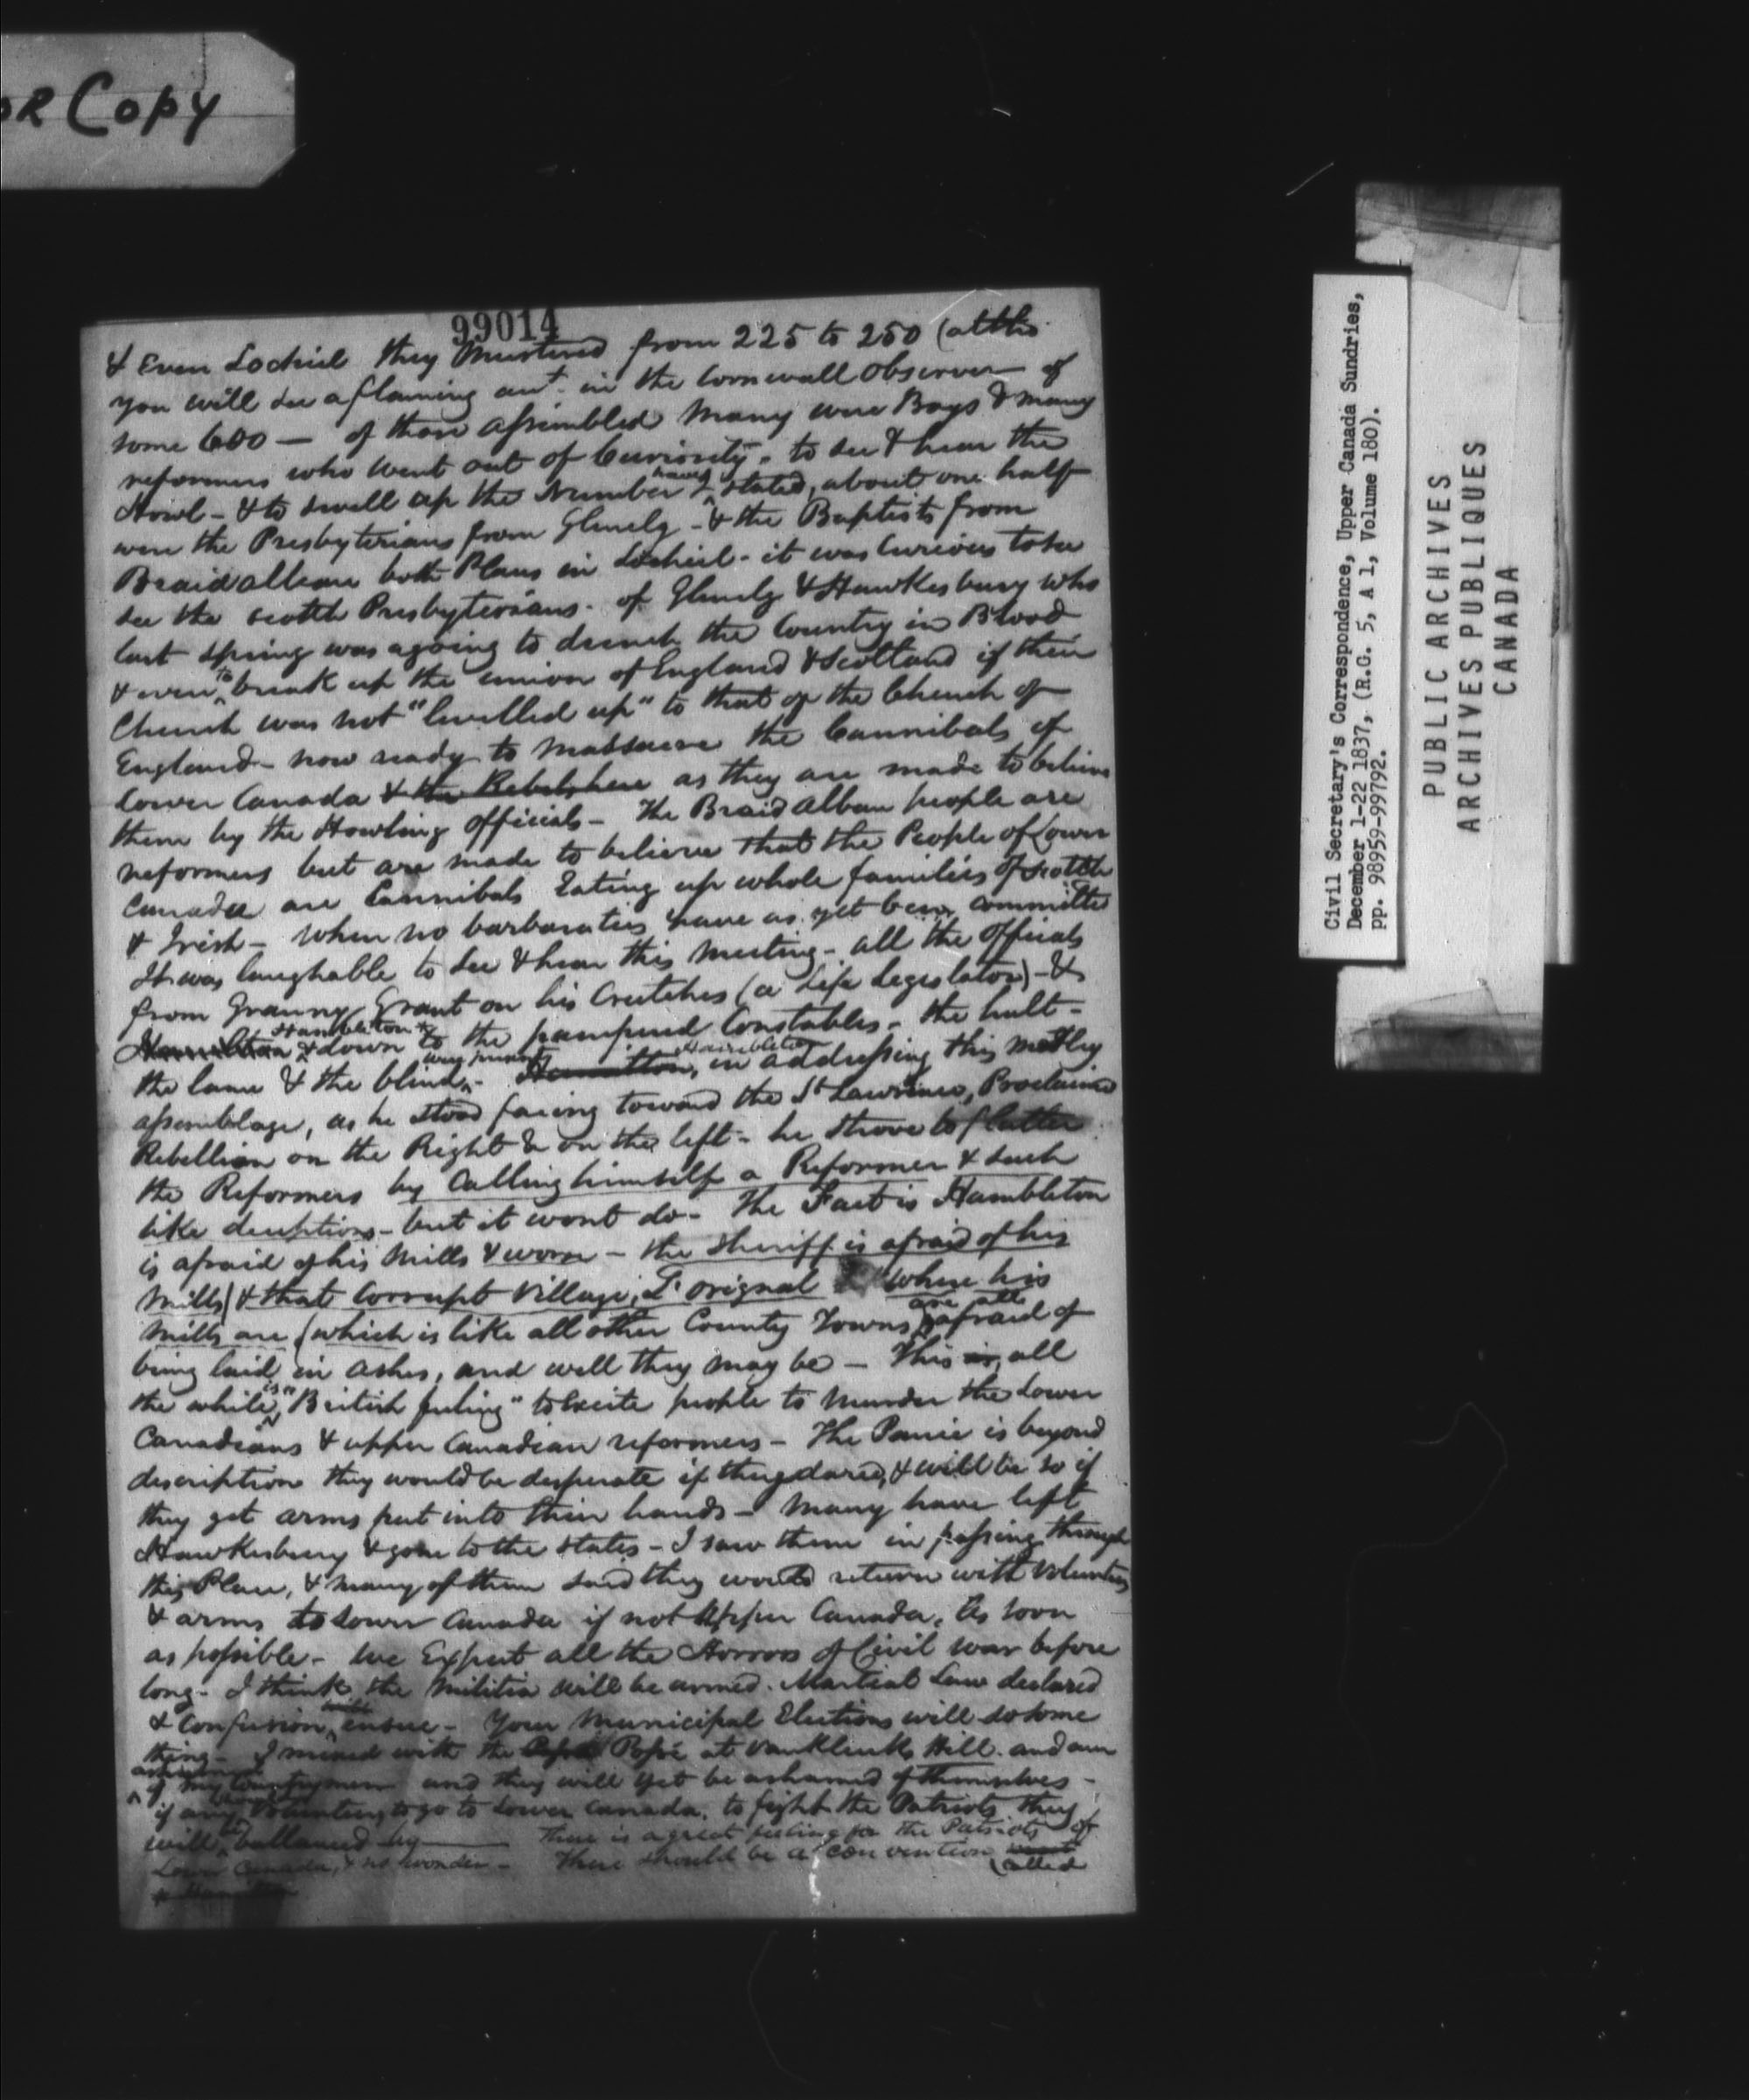 OR Copy
99014
& Even Lochiel they Mustered from 225 to 250 (altho
you will see a flaming acct. in the Cornwall Observer of
some 600 — of those assembled Many were Boys & many
reformers who went out of Curiosity - to see & hear the
Howl - & to swell up the Number I have stated, about one half
were the Presbyterians from Glenelg - & the Baptists from
Braidalbean both Places in Lochiel - it was Curious to see
see the scotch Presbyterians - of Glenelg & Hawkesbury who
last spring was agoing to drench the Country in Blood
& even to break up the union of England & Scotland if their
Church was not "levelled up" to that of the Church of
England - now ready to Massacre the Cannibals of
Lower Canada & the Rebels here as they are made to believe
them by the Howling officials - The Braidalbean people are
reformers but are made to believe that the People of Lower
Canada are Cannibals Eating up whole families of Scotch
& Irish - When no barbarities have as yet been committed
It was laughable to see & hear this Meeting - all the officials
from Granny Grant on his Crutches (a Life Legislator) - &
Hamilton Hambleton & down to the pampered Constables - the halt -
the lame & the blind were present - Hamilton, Hambleton in addressing this motley
assemblage, as he stood facing toward the St Lawrence, Proclaimed
Rebellion on the Right & on the left - he strove to flatter
the Reformers by Calling himself a Reformer & such
like deceptions - but it wont do - The Fact is Hambleton
is afraid of his Mills & worse - the Sheriff is afraid of his
Mills) & that Corrupt Village, L'orignal where his
Mills are (which is like all other County Towns) are all afraid of
being laid in ashes, and well they may be — This is, all
the while, is "British feeling" to Excite people to Murder the Lower
Canadians & upper Canadian reformers - The Panic is beyond
description they would be desperate if they dared, & will be so if
they get arms put into their hands - Many have left
Hawkesbury & gone to the states - I saw them in passing through
this Place, & many of them said they would return with Volunteers
& arms to Lower Canada if not Upper Canada, as soon
as possible - We Expect all the Horrors of Civil War before
long - I think the Militia will be armed. Martial Law declared
& Confusion will ensue - Your Municipal Elections will do some
thing - I mixed with the Posse at Vankleeks Hill. and am
ashamed of my Countrymen and they will yet be ashamed of themselves -
if any Volunteers to go to Lower Canada, to fight the Patriots they
will be ballanced by ——— There is a great feeling for the Patriots of
Lower Canada, & no wonder - There should be a Convention called
Civil Secretary's Correspondence, Upper Canada Sundries,
December 1-22 1837, (R.G. 5, A 1, Volume 180).
pp. 98959-99792.
PUBLIC ARCHIVES
ARCHIVES PUBLIQUES
CANADA